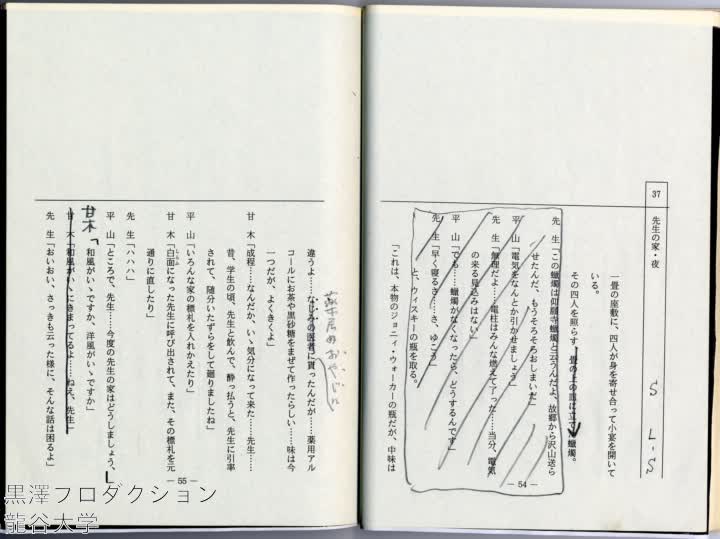 37
先生の家・夜
S L-S
一畳の座敷に、四人が身を寄せ合って小宴を開いて
いる。
その四人を照らす、畳の上の皿に立てた蠟燭。
先 生「この蠟燭は仰願寺蠟燭と云うんだよ、故郷から沢山送ら
せたんだ、もうそろそろおしまいだ」
平 山「電気をなんとか引かせましょう」
先 生「無理だよ……電柱はみんな燃えて了った……当分、電気
の来る見込みはない」
平 山「でも……蠟燭がなくなったら、どうするんです」
先 生「早く寝るさ……さ、ゆこう」
と、ウィスキーの瓶を取る。
「これは、本物のジョニィ・ウォーカーの瓶だが、中味は
— 54 —
違うよ……なじみの医者に貰ったんだが……薬用アル
薬屋のおやじに
コールにお茶や黒砂糖をまぜて作ったらしい……味は今
一つだが、よくきくよ」
甘 木「成程……なんだか、いゝ気分になって来た……先生……
昔、学生の頃、先生と飲んで、酔っ払うと、先生に引率
されて、随分いたずらをして廻りましたね」
平 山「いろんな家の標札を入れかえたり」
甘 木「白面になった先生に呼び出されて、また、その標札を元
しらふ
通りに直したり」
先 生「ハハハ」
平 山「ところで、先生……今度の先生の家はどうしましょう、」
甘木「和風がいゝですか、洋風がいゝですか」
甘 木「和風がいゝにきまってるよ……ねえ、先生」
先 生「おいおい、さっきも云った様に、そんな話は困るよ」
— 55 —
黒澤プロダクション
龍谷大学